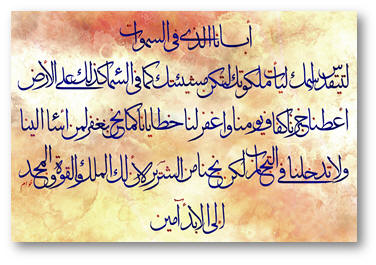 أبانا الذى فى السموات
ليتقدس اسمك ليأت ملكوتك لتكن مشيئتك كما فى السما كذلك على الأرض
أعطنا خبزنا كفاة يومنا واغفر لنا خطايانا كما نحن نغفر لمن أسأ الينا
ولا تدخلنا فى التجارب لكن نجنا من الشرير لأن لك الملك والقوة والمجد
إلى الأبد آمين